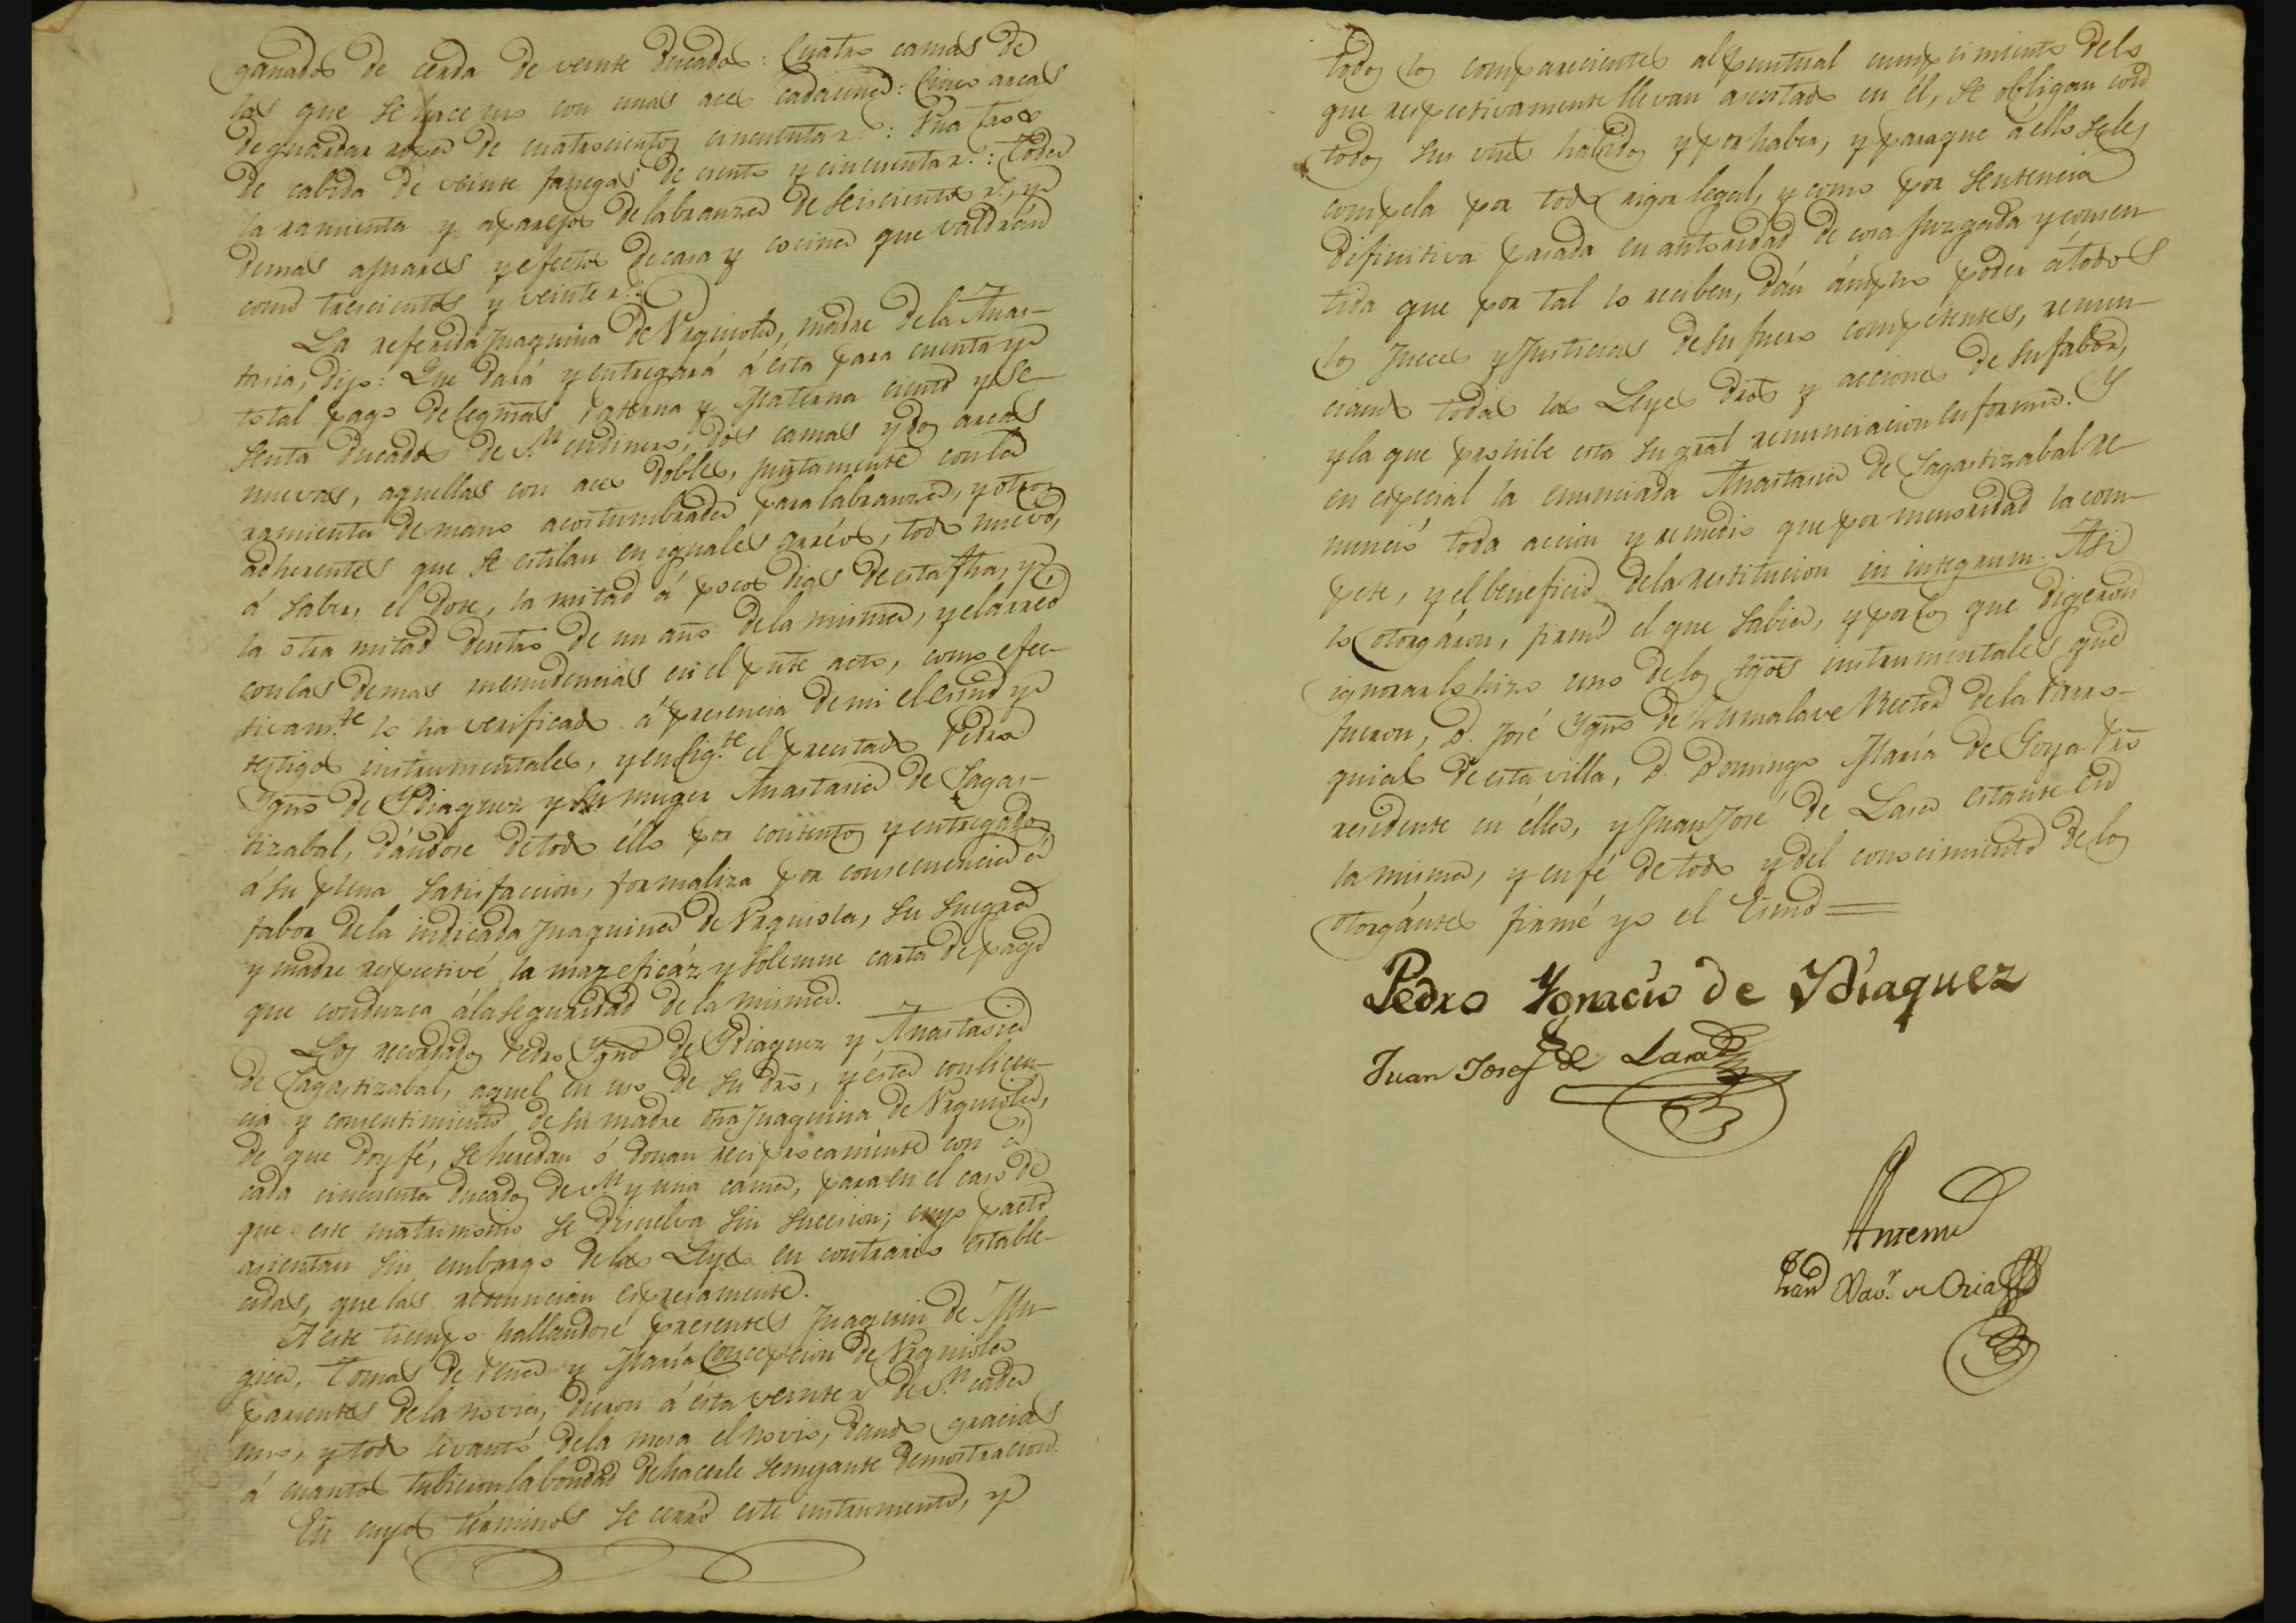 ganados de cerda de veinte ducados: Cuatro camas de
las que se hace uso con unas aces cadauna: Cinco arcas
deguardar ropa de cuatrocientos cincuenta r.s: Una trox
de cabida de veinte fanegas de ciento y cincuenta r.s: Toda
la ramienta y aparejos delabranza de seiscientos r.s, y
demas ajuares y efectos de casa y cocina que valdrán
como trescientos y veinte r.s
La referida Juaquina de Urquiola, madre dela Anas-
tasia, dijo: Que dará y entregará á esta para cuenta y
total pago delegmas Paterna y Materna ciento y se-
senta ducados de v.n endinero, dos camas y dos arcas
nuevas, aquellas con aces dobles, juntamente conla
ramienta demano acostumbrada para labranza, y otros
adherentes que se estilan en iguales arréos, todo nuevo,
á saber, el dote, la mitad á pocos dias de esta fha, y
la otra mitad dentro de un año dela misma, y elarréo
conlas demas menudencias en el pnte acto, como efec-
tivam.te lo ha verificado á presencia demi el esno y
testigos instrumentales, y ensig.te el precitado Pedro
Ygno de Ydiaquez y su muger Anastasia de Sagas-
tizabal, dándose detodo éllo por contentos y entregados
ásu plena satisfaccion, formaliza por consecuencia á
fabor dela indicada Juaquina de Urquiola, su suegra
y madre respectivé la mas eficáz y solemne carta de pago
que conduzca álaseguridad dela misma.
Los recordados Pedro Ygno de Ydiaquez y Anastasia
de Sagastizabal, aquel en uso de su dro, y ésta conlicen-
cia y consentimiento de su madre dha Juaquina de Urquiola,
de que doy fé, se heredan ó donan reciprocamente con á
cada cincuenta ducados de v.n y una cama, para en el caso de
que este matrimonio se disuelva sin sucesion; cuyo pacto
asientan sin embargo delas Leyes en contrario estable-
cidas, que las renuncian espresamente.
A este tiempo hallandose presentes Juaquin de Mu-
gica, Tomas de Pena y María Concepcion de Urquiola
parientes dela novia, dieron á ésta veinte r.s de v.n cada
uno, y todo levantó dela mesa el novio, dando gracias
á cuantos tubieron la bondad dehacerle semejante demostracion.
En cuyos términos se cerró este instrumento, y
todos los comparecientes al puntual cumplimiento delo
que respectivamente llevan asentado en él, se obligan con
todos sus vnes habidos y por haber, y paraque á ello seles
compela por todo rigor legal, y como por sentencia
difinitiva pasada en autoridad de cosa juzgada y consen-
tida que por tal lo reciben, dán ámplio poder á todos
los Jueces y Justicias desu fuero competentes, renun-
ciando todas las Leyes dros y acciones de su fabor,
y la que prohibe esta su gral renunciacion en forma. Y
en especial la enunciada Anastasia de Sagastizabal re-
nunció toda accion y remedio que por menoridad la com-
pete, y el beneficio dela restitucion in integrum. Asi
lo otorgáron, firmó el que sabia, y por los que digeron
ignorar lo hizo uno delos tgos instrumentales que
fueron, D. José Ygno de Rector dela Parro-
quial de esta villa, D. Domingo María de Goya Pro
residente en élla, y Juan José de Lasa estante en
la misma, y en fé de todo y del conocimiento de los
otorgántes firmé yo el Esno
Pedro Ygnacio de Ydiaquez
Juan Josef de Lasa
Antemi